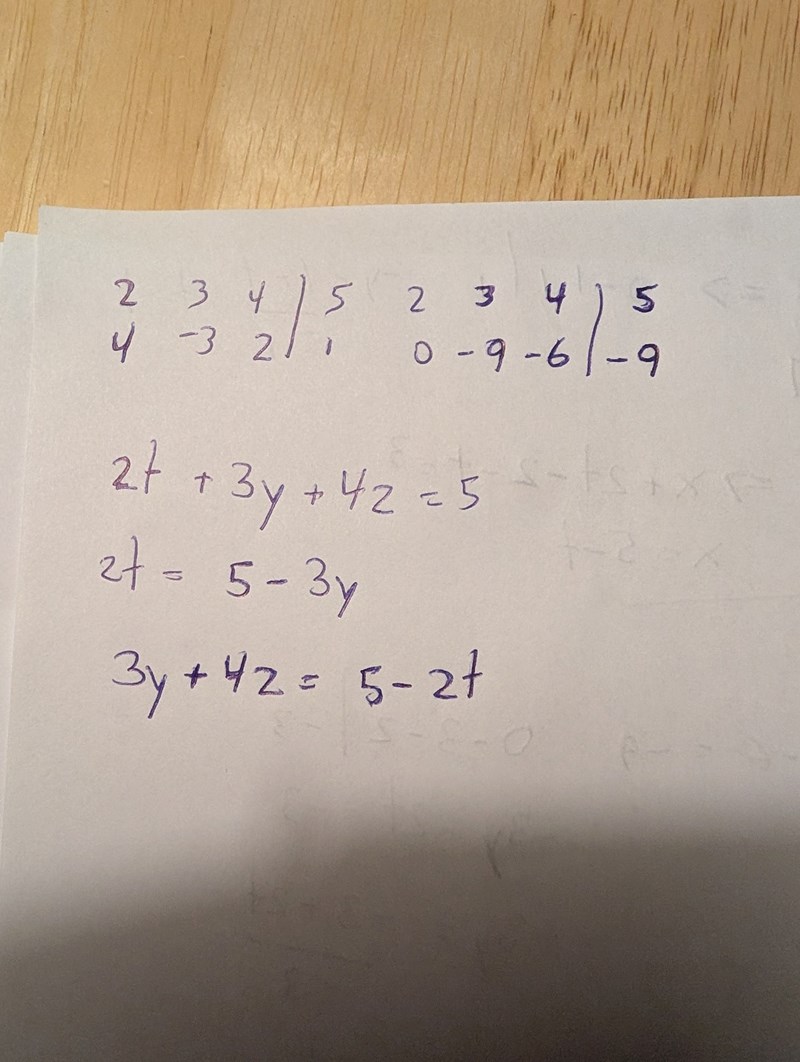 2 3 4 | 5 2 3 4 | 5
4 -3 2 | 1 0 -9 -6 | -9
2t + 3y + 4z = 5
2t = 5 - 3y
3y + 4z = 5 - 2t